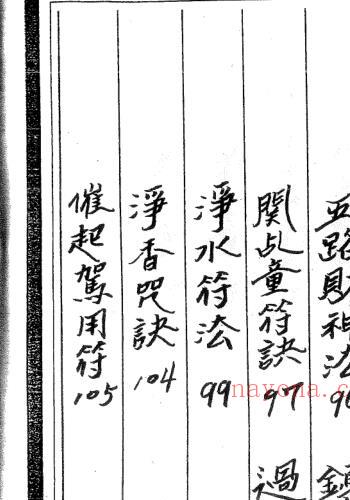 五路財神法 96
鎮
關乩童符訣 97
過
淨水符法 99
淨香咒訣 104
催起駕用符 105
nayona.cn